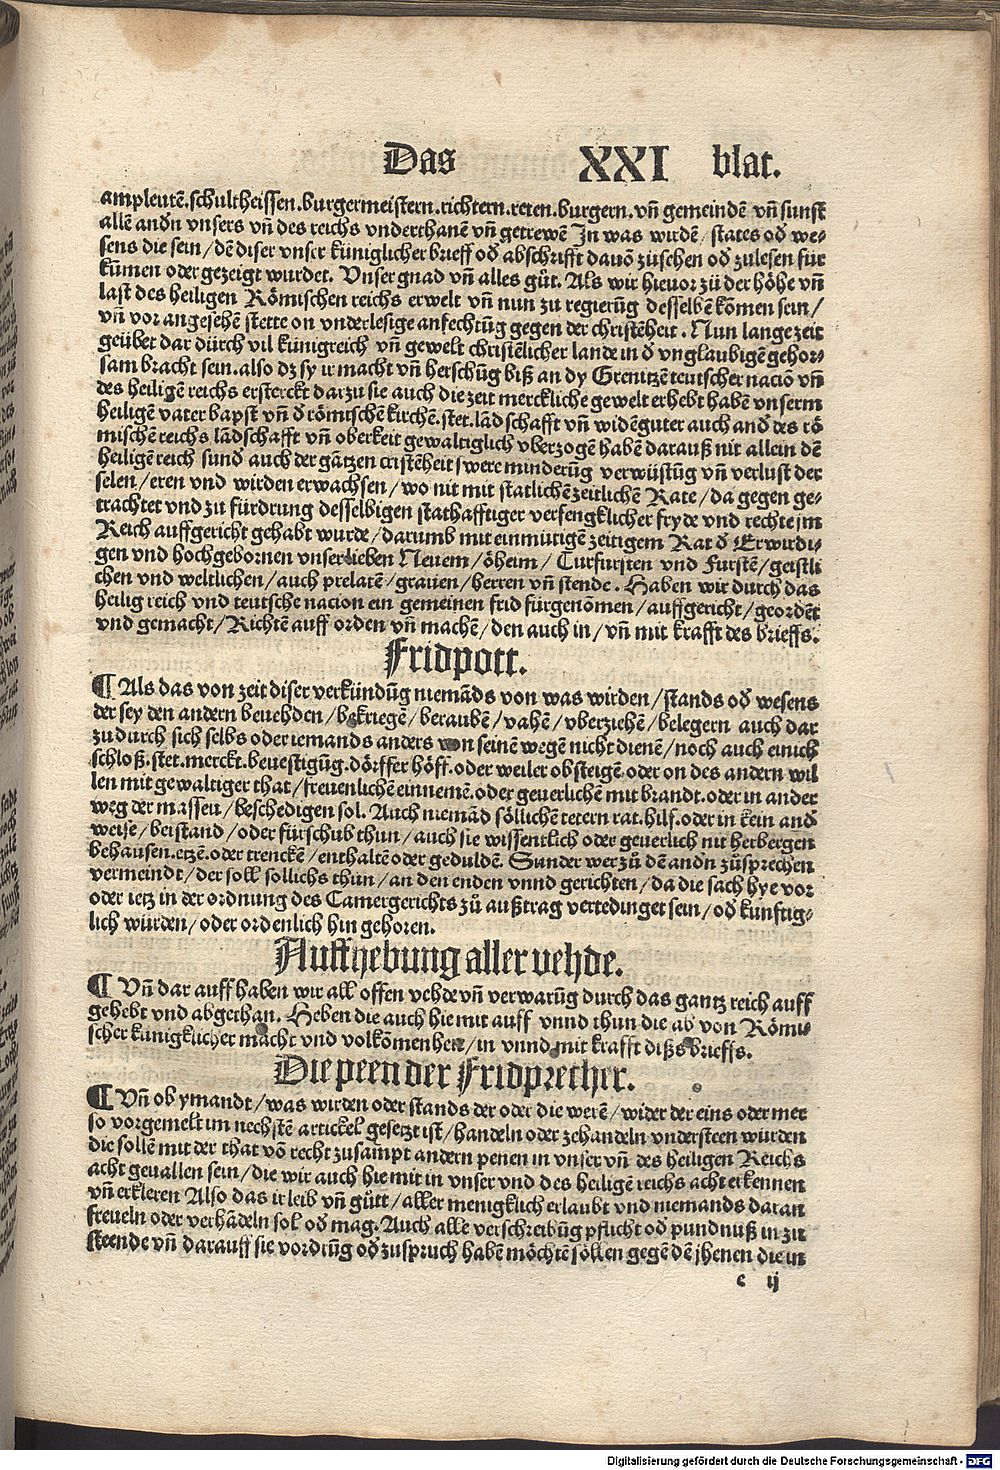 Das XXI blat.
ampleutē.schultheissen.burgermeistern.richtern.reten.burgern.vñ gemeindē vñ sunst
allē andn vnsers vñ des reichs vnderthanē vñ getrewē In was wirdē/states od we-
sens die sein/dē diser vnser küniglicher brieff od abschrifft dauō zusehen od zulesen für
kūmen oder gezeigt wurdet. Vnser gnad vñ alles gůt. Als wir hieuor zů der höhe vñ
last des heiligen Römischen reichs erwelt vñ nun zu regierūg desselbē kōmen sein/
vñ vor angesehē stette on vnderlesige anfechtūg gegen der christēheit. Nun lange zeit
geübet dar dürch vil künigreich vñ gewelt christēlicher lande in d vnglaubigē gehor-
sam bracht sein.also dz sy ir macht vñ herschūg biß an dy Grenitzē teutscher naciō vñ
des heiligē reichs ersterckt darzu sie auch die zeit merckliche gewelt erhebt habē vnserm
heiligē vater bapst vñ d römischē kirchē.stet.lādschafft vñ widēguter auch and des rö
mischē reichs lādschafft vñ oberkeit gewaltiglich vberzogē habē darauß nit allein dē
heiligē reich sund auch der gātzen cristēheit swere minderūg verwüstūg vñ verlust der
selen/eren vnd wirden erwachsen/wo nit mit statlichē zeitlichē Rate/da gegen ge-
trachtet vnd zu fürdrung desselbigen stathafftiger verfengklicher fryde vnd rechte jm
Reich auffgericht gehabt wurde/darumb mit einmütigē zeitigem Rat d Erwirdi-
gen vnd hochgebornen vnser lieben Neuem/öheim/Curfursten vnd Furstē/geistli
chen vnd weltlichen/auch prelatē/grauen/herren vñ stende. Haben wir durch das
heilig reich vnd teutsche nacion ein gemeinen frid fürgenōmen/auffgericht/geordēt
vnd gemacht/Richtē auff orden vñ machē/den auch in/vñ mit krafft des brieffs.
Fridpott.
¶ Als das von zeit diser verkündūg niemāds von was wirden/stands od wesens
der sey den andern beuehden/bekriegē/beraubē/vahē/vberziehē/belegern auch dar
zu durch sich selbs oder iemands anders von seinē wegē nicht dienē/noch auch einich
schloß.stet.merckt.beuestigūg.dörffer höff.oder weiler obsteigē oder on des andern wil
len mit gewaltiger that/freuenlichē einnemē.oder geuerlichē mit brandt.oder in ander
weg der massen/beschedigen sol. Auch niemād söllichē tetern rat.hilf.oder in kein and
weise/beistand/oder fürschub thun/auch sie wissentlich oder geuerlich nit herbergen
behausen.etzē.oder trenckē/enthaltē oder geduldē. Sunder wer zů dē andn zůsprechen
vermeindt/der soll sollichs thun/an den enden vnnd gerichten/da die sach hye vor
oder ietz in der ordnung des Camergerichts zů außtrag vertedinget sein/od kunftig-
lich würden/oder ordenlich hin gehoren.
Auffhebung aller vehde.
¶ Vñ dar auff haben wir all offen vehde vñ verwarūg durch das gantz reich auff
gehebt vnd abgethan. Heben die auch hie mit auff vnnd thun die ab von Römi-
scher künigklicher macht vnd volkōmenheit/in vnnd mit krafft dißs brieffs.
Die peen der Fridprecher.
¶ Vñ ob ymandt/was wirden oder stands der oder die werē/wider der eins oder mer
so vorgemelt im nechstē artickel gesetzt ist/handeln oder zehandeln vndersteen würden
die sollē mit der that vō recht zusampt andern penen in vnser vñ des heiligen Reichs
acht geuallen sein/die wir auch hie mit in vnser vnd des heiligē reichs acht erkennen
vñ erkleren Also das ir leib vñ gütt/aller menigklich erlaubt vnd niemands daran
freueln oder verhādeln sol od mag. Auch alle verschreibūg pflicht od pundnuß in zu
steende vñ darauff sie vordrūg od zuspruch habē möchtē söllen gegē dē jhenen die in
c ij
Digitalisierung gefördert durch die Deutsche Forschungsgemeinschaft - DFG